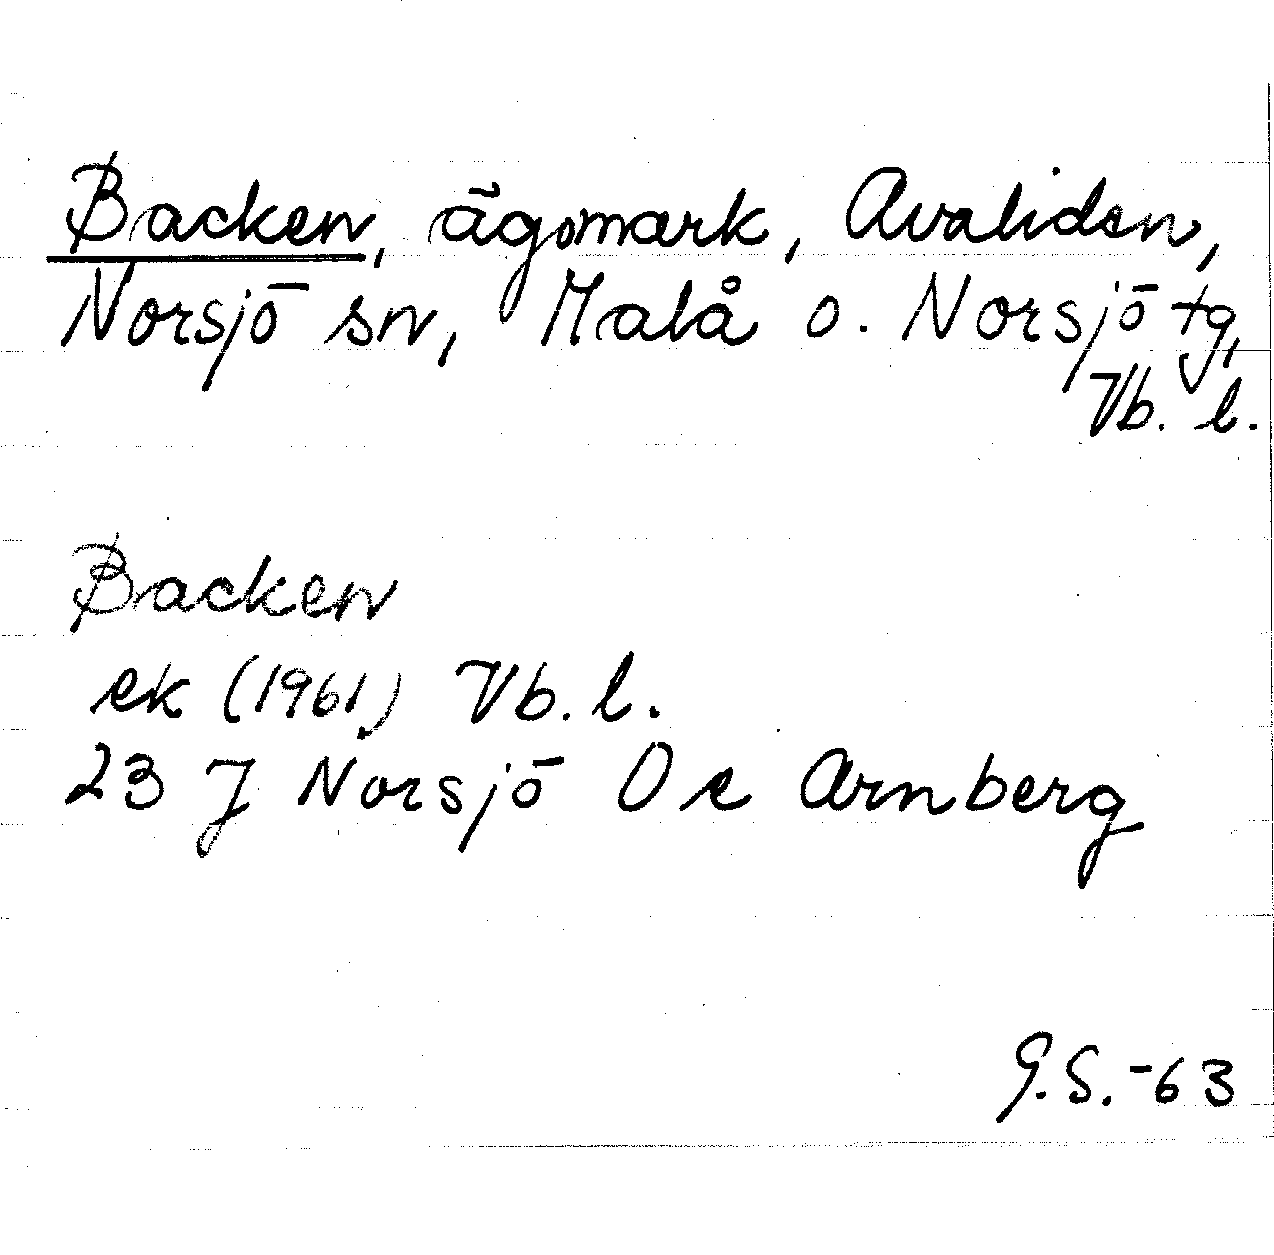 Backen, ägomark, Avaliden,
Norsjö sn, Malå o. Norsjö tg,
Vb. l.
Backen
ek (1961) Vb. l.
23 J Norsjö O e Arnberg
G.S.-63